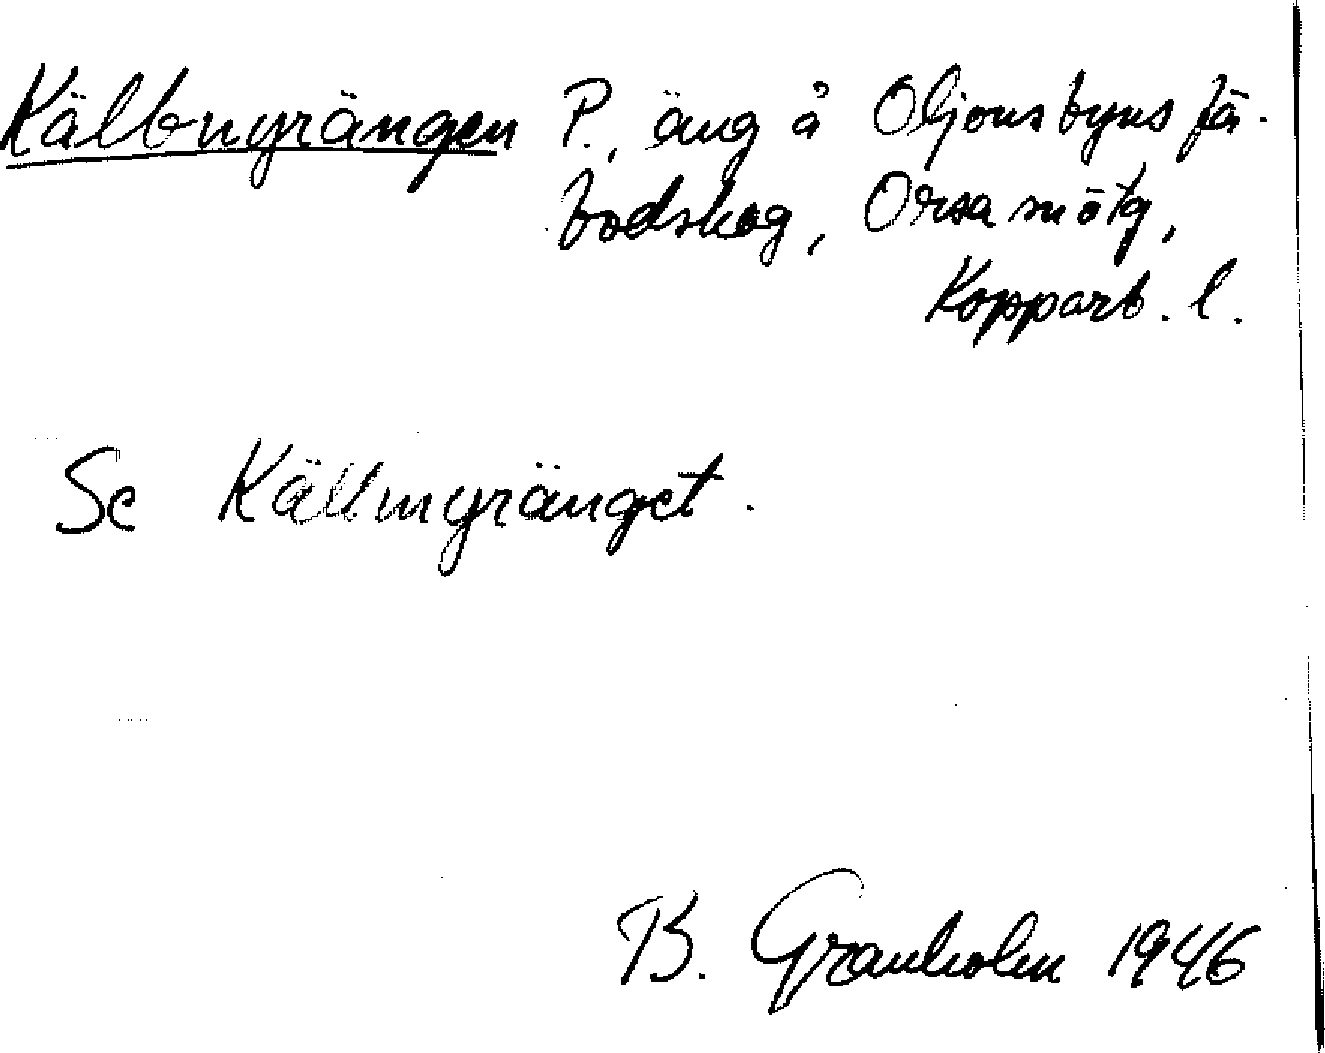 Källmyrängen P., äng å Oljonsbyns fä-
bodskog, Orsa sn östg,
Kopparb. l.
Se Källmyränget.
B. Granholm 1946